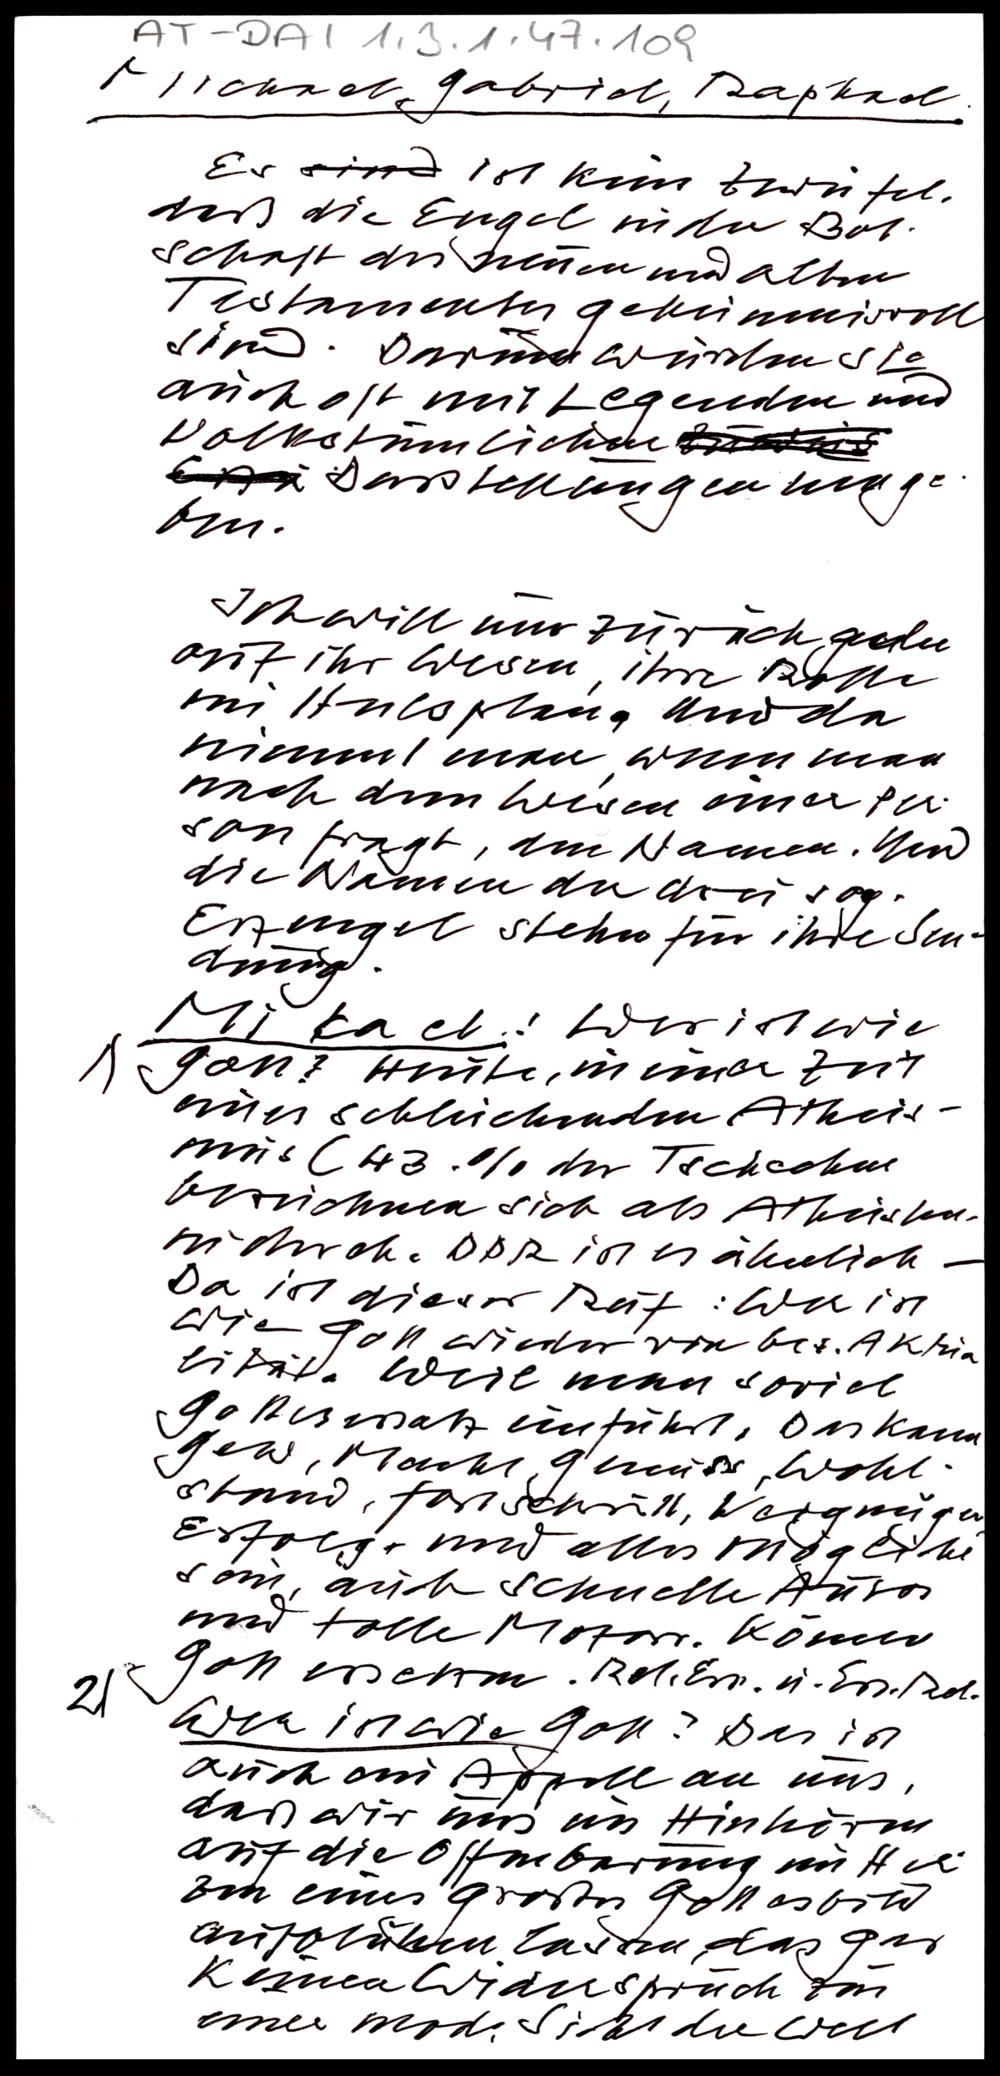 AT-DAI 1.3.1.47.109
Michael, Gabriel, Raphael.
Es sind ist kein Zweifel,
daß die Engel in der Bot-
schaft des neuen und alten
Testamentes geheimnisvoll
sind. Darum wurden sie
auch oft mit Legenden und
Volkstümlichen
Darstellungen umge-
ben.
Ich will nur zurück gehen
auf ihr Wesen, ihre Rolle
im Heilsplan. Und da
nimmt man, wenn man
nach dem Wesen einer Per-
son fragt, den Namen. Und
die Namen der drei sog.
Erzengel stehen für ihre Sen-
dung.
Mi ka el.: Wer ist wie
1) Gott? Heute, in einer Zeit
eines schleichenden Atheis-
mus (43 % der Tschechen
bezeichnen sich als Atheisten.
in der eh. DDR ist es ähnlich –
Da ist dieser Ruf: Wer ist
wie Gott wieder von bes. Aktua
lität. Weil man soviel
Gottesersatz einführt. Das kann
Geld, Macht, Genuss, Wohl-
stand, Fortschritt, Vergnügen
Erfolg, und alles Mögliche
sein, auch schnelle Autos
und tolle Motorr. Können
Gott ersetzen. Rel.Ers. u. Ers.Rel.
2) Wer ist wie Gott? Das ist
auch ein Appell an uns,
dass wir uns im Hinhören
auf die Offenbarung im Her
zen eines großes Gottesbild
aufblühen lassen, das gar
keinen Widerspruch zu
einer mod. Sicht der Welt